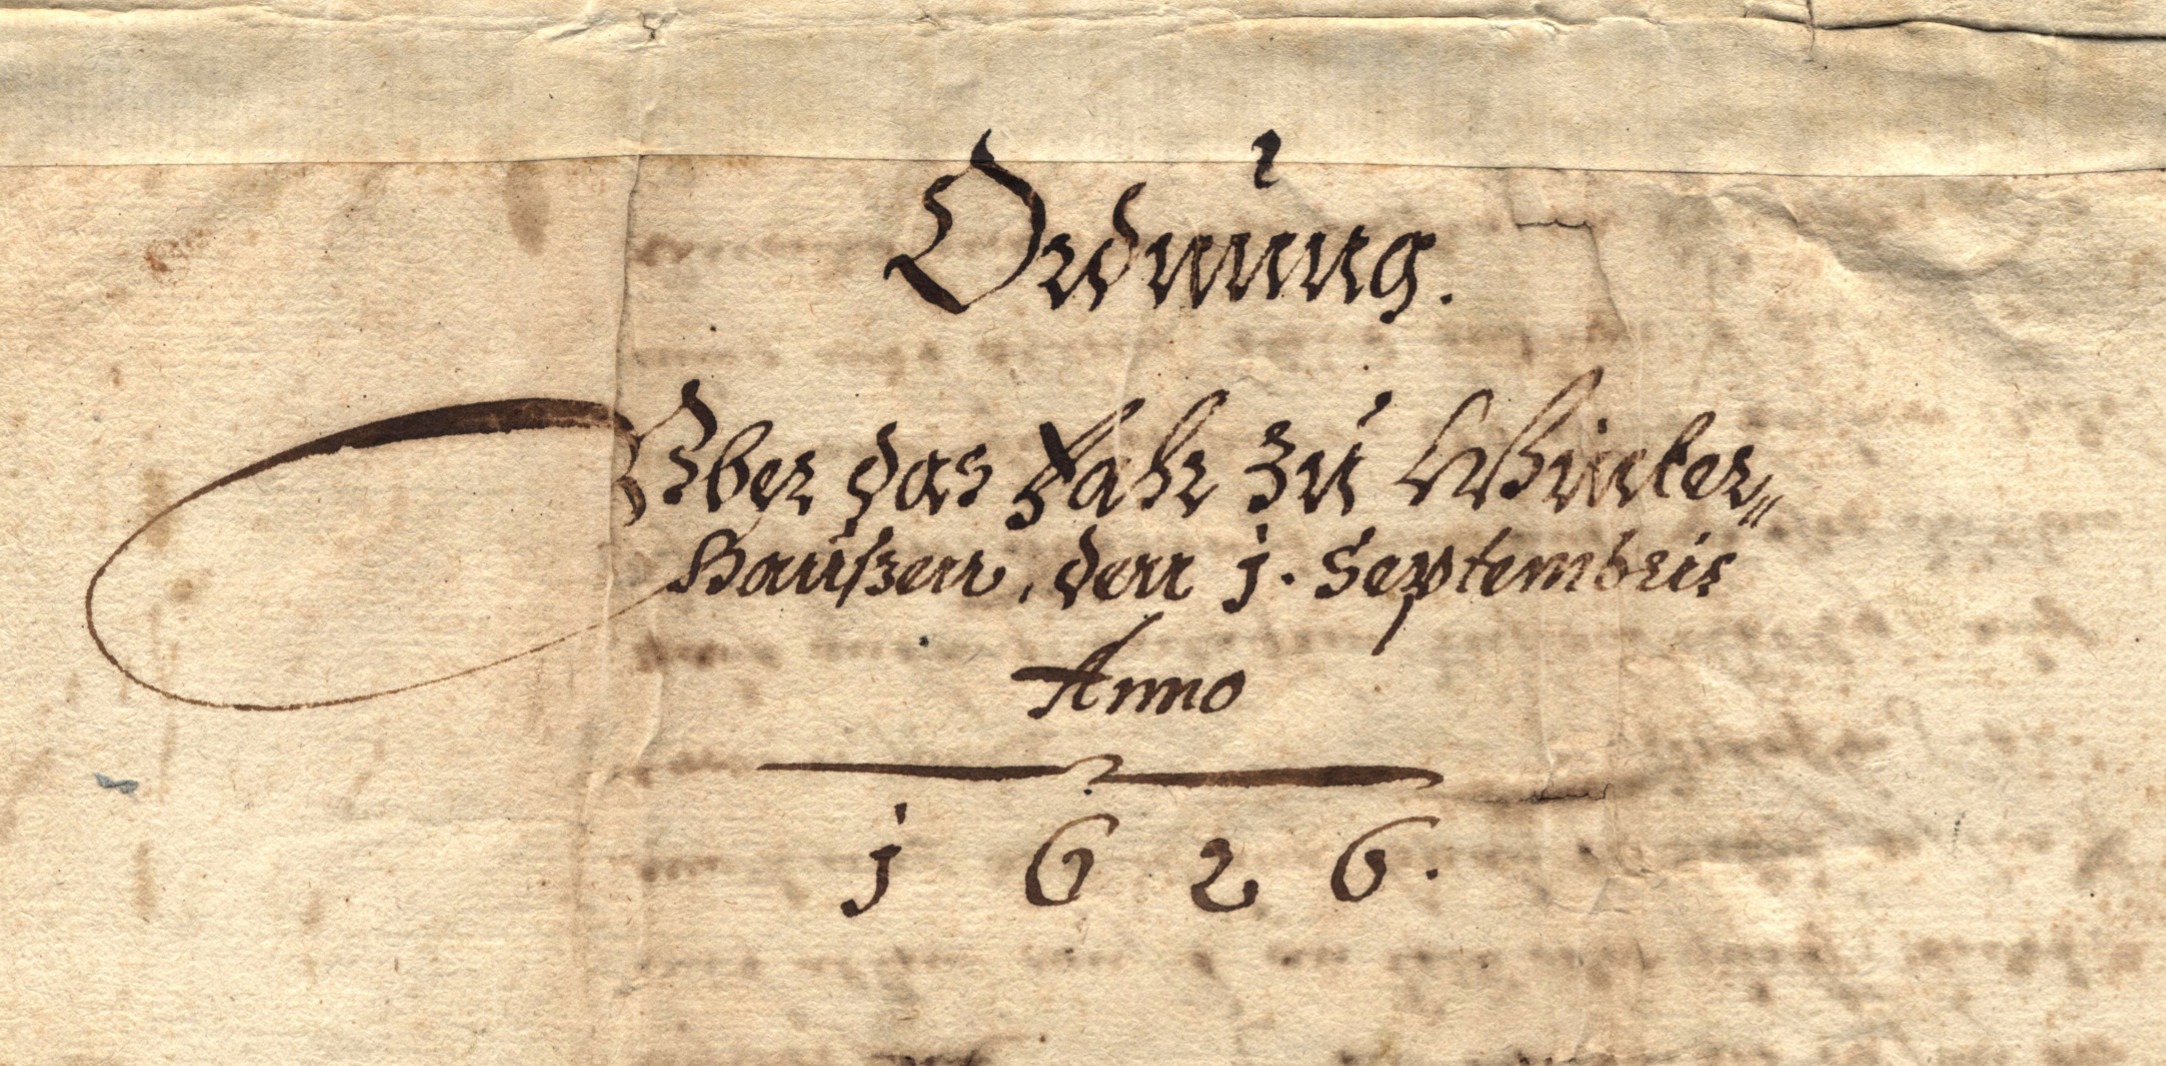 Ordnung.
Vber das Fahr zu Winter„
haußen, den j. Septembris
Anno
j 6 2 6.